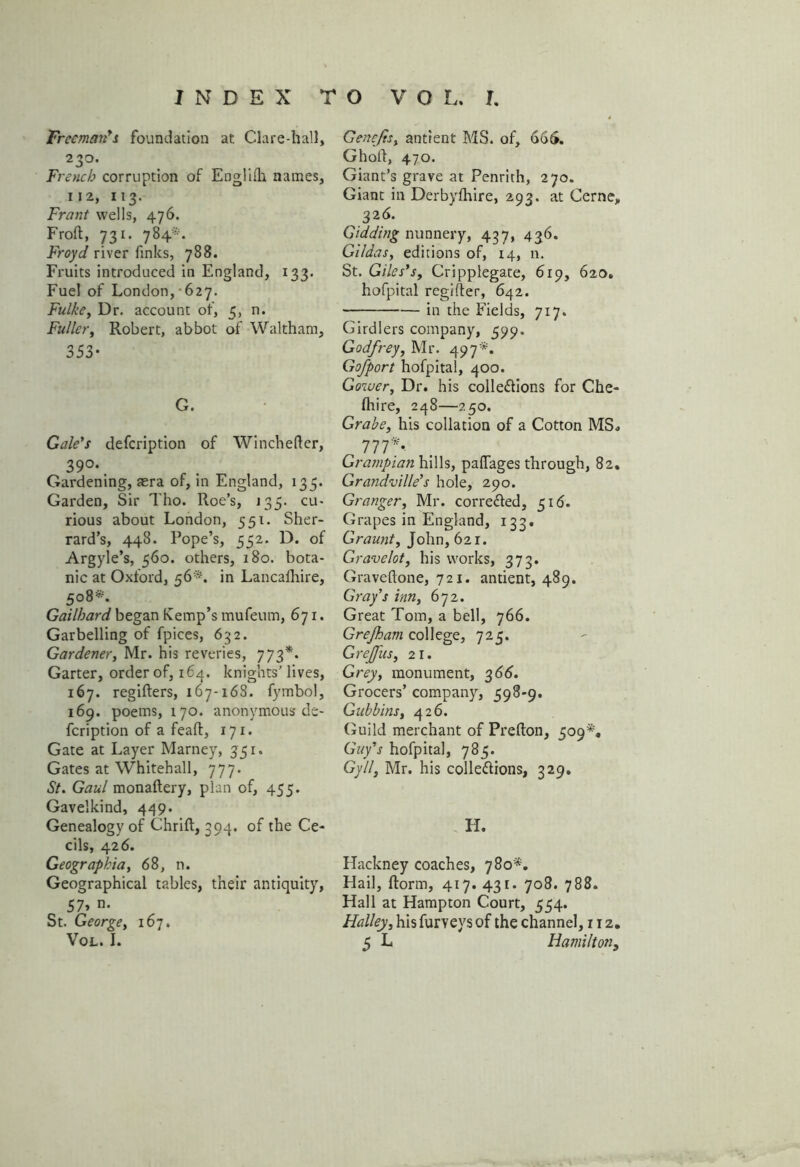 INDEX TO VOL. I.
Freeman's foundation at Clare-hall,
230.
French corruption of Engliſh names,
112, 113.
Frant wells, 476.
Froſt, 731. 784*.
Froyd river ſinks, 788.
Fruits introduced in England, 133.
Fuel of London, 627.
Fulke, Dr. account of, 5, n.
Fuller, Robert, abbot of Waltham,
353.
G.
Gale's deſcription of Wincheſter,
390.
Gardening, æra of, in England, 135.
Garden, Sir Tho. Roe's, 135. cu-
rious about London, 551. Sher-
rard's, 448. Pope's, 552. D. of
Argyle's, 560. others, 180. bota-
nic at Oxford, 56*. in Lancaſhire,
508*.
Gailhard began Kemp's muſeum, 671.
Garbelling of ſpices, 632.
Gardener, Mr. his reveries, 773*.
Garter, order of, 164. knights' lives,
167. regiſters, 167-168. ſymbol,
169. poems, 170. anonymous de-
ſcription of a feaſt, 171.
Gate at Layer Marney, 351.
Gates at Whitehall, 777.
St. Gaul monaſtery, plan of, 455.
Gavelkind, 449.
Genealogy of Chriſt, 394. of the Ce-
cils, 426.
Geographia, 68, n.
Geographical tables, their antiquity,
57, n.
St. George, 167.
VOL. I.
Geneſis, antient MS. of, 666.
Ghoſt, 470.
Giant's grave at Penrith, 270.
Giant in Derbyſhire, 293. at Cerne,
326.
Gidding nunnery, 437, 436.
Gildas, editions of, 14, n.
St. Giles's, Cripplegate, 619, 620.
hoſpital regiſter, 642.
——— in the Fields, 717.
Girdlers company, 599.
Godfrey, Mr. 497*.
Goſport hoſpital, 400.
Gower, Dr. his collections for Che-
ſhire, 248—250.
Grabe, his collation of a Cotton MS.
777*.
Grampian hills, paſſages through, 82.
Grandville's hole, 290.
Granger, Mr. corrected, 516.
Grapes in England, 133.
Graunt, John, 621.
Gravelot, his works, 373.
Graveſtone, 721. antient, 489.
Gray's inn, 672.
Great Tom, a bell, 766.
Greſham college, 725.
Greſſus, 21.
Grey, monument, 366.
Grocers' company, 598-9.
Gubbins, 426.
Guild merchant of Preſton, 509*.
Guy's hoſpital, 785.
Gyll, Mr. his collections, 329.
H.
Hackney coaches, 780*.
Hail, ſtorm, 417. 431. 708. 788.
Hall at Hampton Court, 554.
Halley, his ſurveys of the channel, 112.
5 L Hamilton,